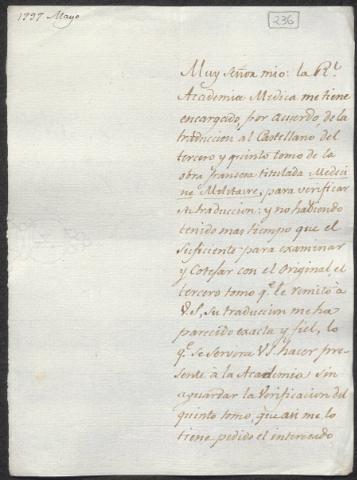 1797 Mayo
236
Muy Señor mio: la Rl.
Academia Medica me tiene
encargado, por acuerdo, de la
traduccion al Castellano del
tercero y quinto tomo de la
obra francesa titulada Medeci
ne Militaire, para verificar
su traduccion: y no habiendo
tenido mas tiempo que el
suficiente para examinar
y cotejar con el original, el
tercero tomo qe. le remito à
V.S, su traduccion me ha
parecido exacta y fiel, lo
qe. se servira V.S. hacer pre
sente à la Academia sin
aguardar la verificacion del
quinto tomo, que asi me lo
tiene pedido el interesado